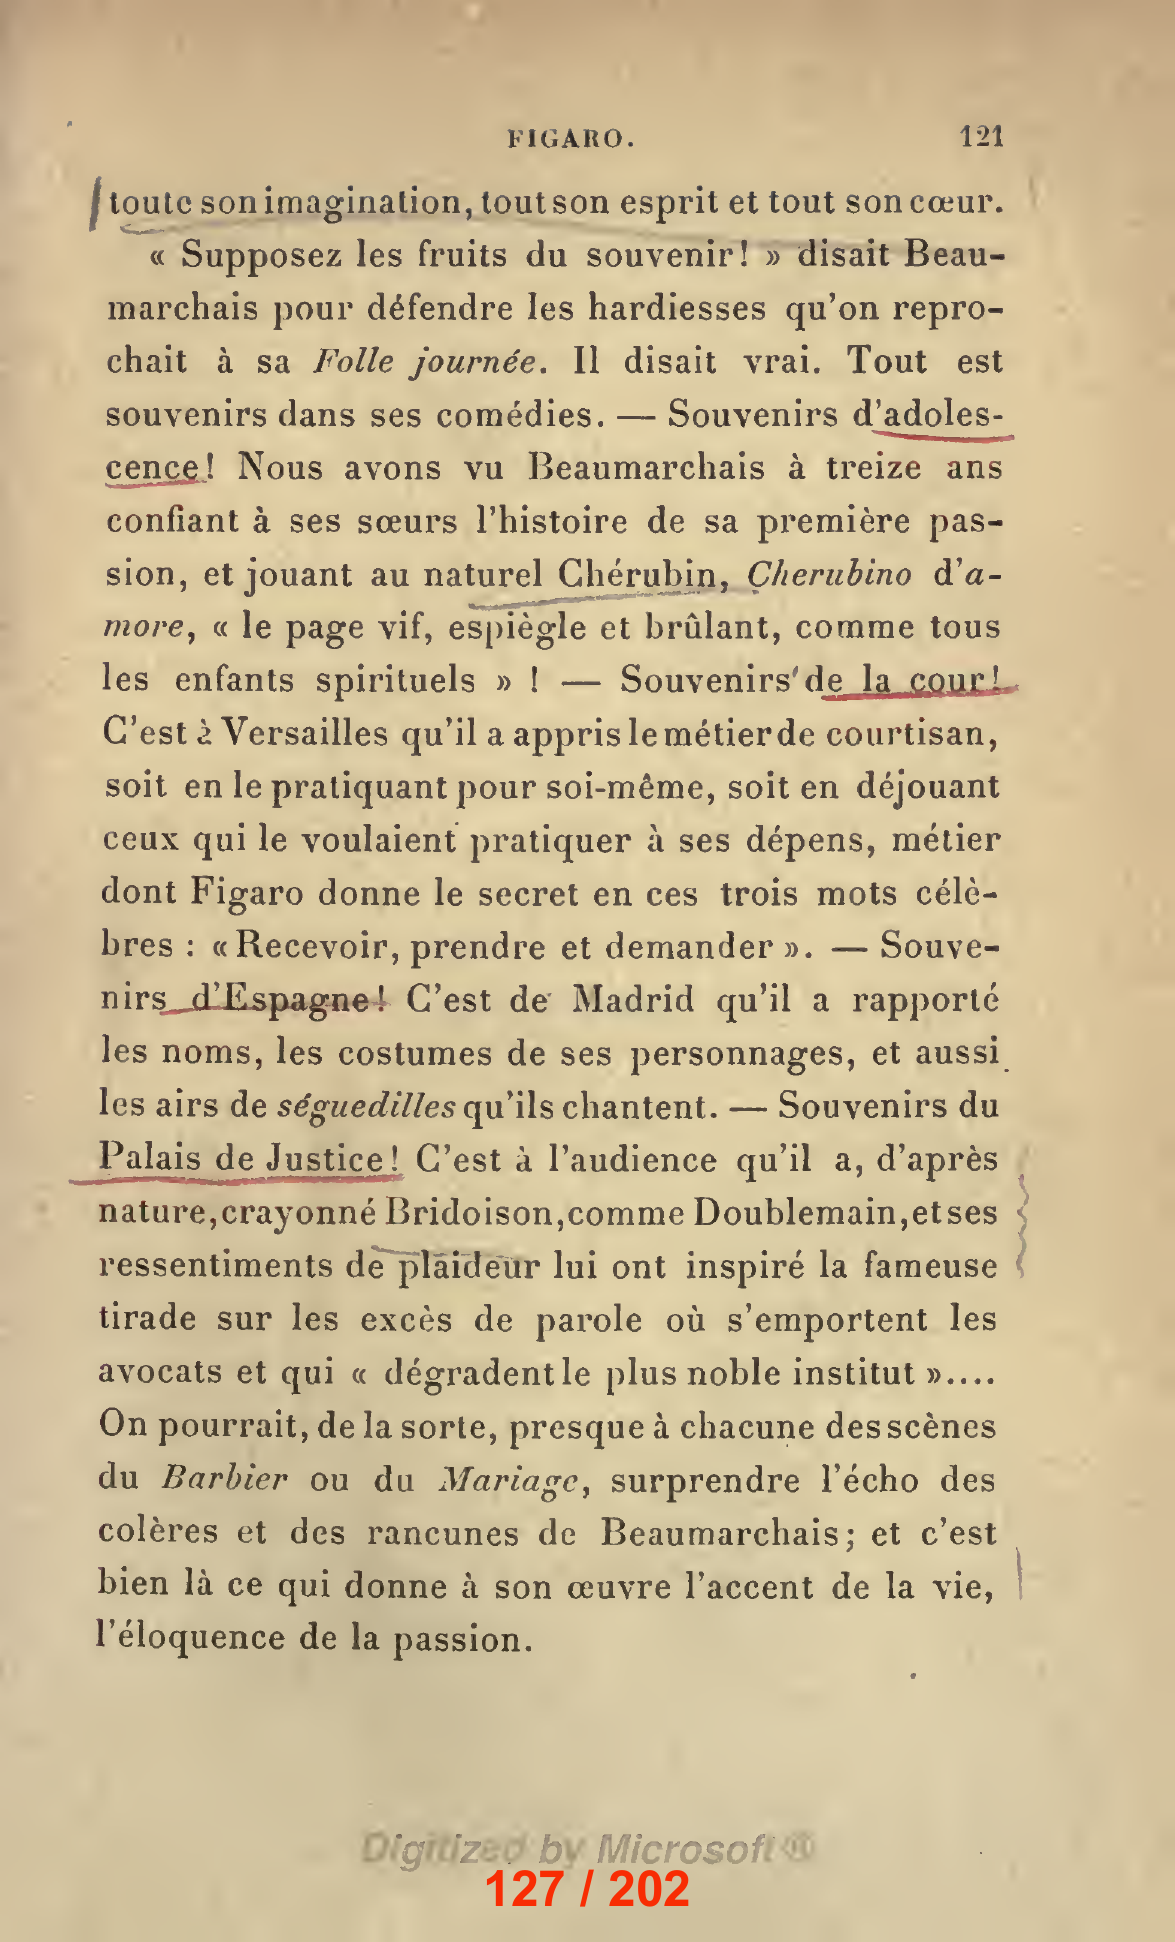 FIGARO. 121
toute son imagination, tout son esprit et tout son cœur.
« Supposez les fruits du souvenir! » disait Beau-
marchais pour défendre les hardiesses qu'on repro-
chait à sa Folle journée. Il disait vrai. Tout est
souvenirs dans ses comédies. — Souvenirs d'adoles-
cence! Nous avons vu Beaumarchais à treize ans
confiant à ses sœurs l'histoire de sa première pas-
sion, et jouant au naturel Chérubin, Cherubino d'a-
more, « le page vif, espiègle et brûlant, comme tous
les enfants spirituels » ! — Souvenirs de la cour!
C'est à Versailles qu'il a appris le métier de courtisan,
soit en le pratiquant pour soi-même, soit en déjouant
ceux qui le voulaient pratiquer à ses dépens, métier
dont Figaro donne le secret en ces trois mots célè-
bres : « Recevoir, prendre et demander ». — Souve-
nirs d'Espagne! C'est de Madrid qu'il a rapporté
les noms, les costumes de ses personnages, et aussi
les airs de séguedilles qu'ils chantent. — Souvenirs du
Palais de Justice! C'est à l'audience qu'il a, d'après
nature, crayonné Bridoison, comme Doublemain, et ses
ressentiments de plaideur lui ont inspiré la fameuse
tirade sur les excès de parole où s'emportent les
avocats et qui « dégradent le plus noble institut »....
On pourrait, de la sorte, presque à chacune des scènes
du Barbier ou du Mariage, surprendre l'écho des
colères et des rancunes de Beaumarchais; et c'est
bien là ce qui donne à son œuvre l'accent de la vie,
l'éloquence de la passion.
Digitized by Microsoft ®
127 / 202